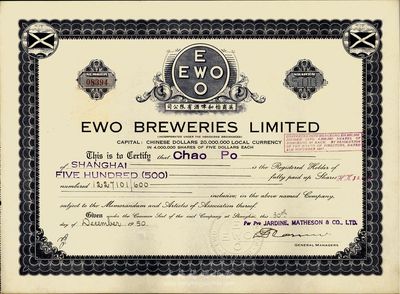 NUMBER
08394
SHARES
EWO
EWO
司公限有酒啤和怡商英
EWO BREWERIES LIMITED
(INCORPORATED UNDER THE HONGKONG ORDINANCES)
CAPITAL: CHINESE DOLLARS 20,000,000 LOCAL CURRENCY
IN 4,000,000 SHARES OF FIVE DOLLARS EACH
This is to Certify that Chao Po
of SHANGHAI is the Registered Holder of
FIVE HUNDRED (500) fully paid up Shares
numbered 1227101/600
inclusive, in the above named Company,
subject to the Memorandum and Articles of Association thereof.
Given under the Common Seal of the said Company at Shanghai, this 30th
day of December 1950.
Per Pro JARDINE, MATHESON & CO. LTD.
GENERAL MANAGERS